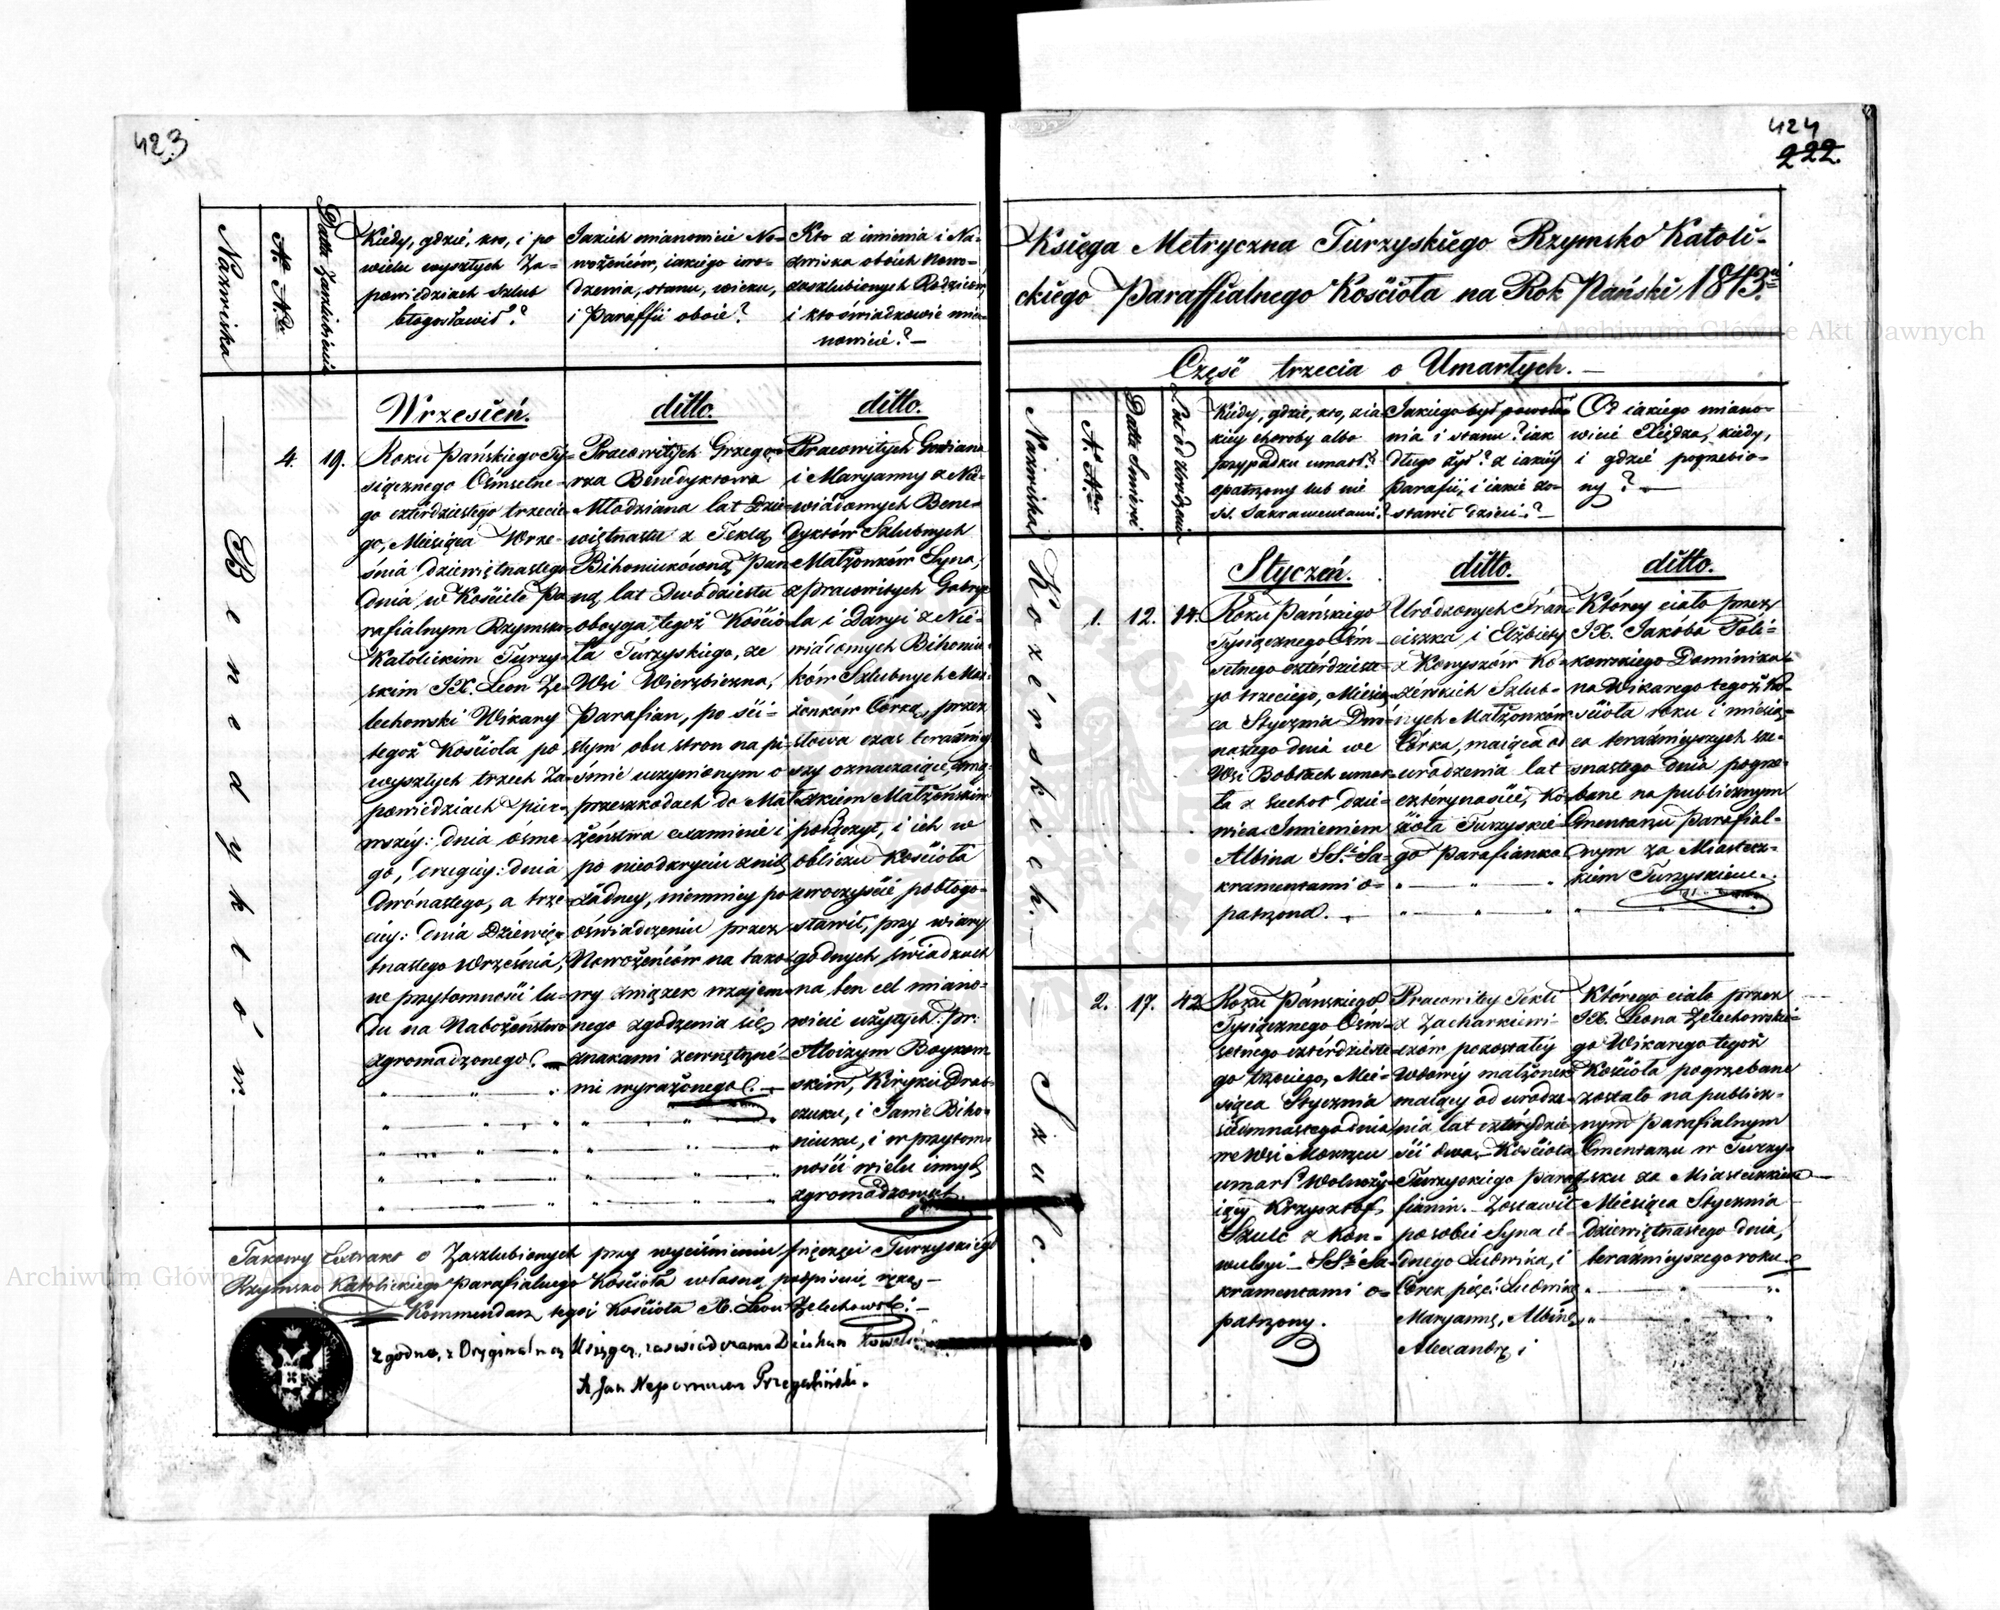 423
Nazwiska
No N.ro
Datta Zaszlubienia
Kiedy, gdzie, kto, i po
wielu wyszłych Za-
powiedziach szlub
błogosławił?
Jakich mianowicie No-
wożeńców, iakiego uro-
dzenia, stanu, wieku,
i Paraffii oboie?
Kto z imienia i Na-
zwiska oboich Nowo-
zaszlubionych Rodziców,
i kto świadkowie mia-
nowicie? —
Benedyktów.
4.
19.
Wrzesień.
Roku Pańskiego Ty-
siącznego Ośmsetne-
go czterdziestego trzecie-
go, Miesiąca Wrze-
śnia dziewiętnastego
dnia, w Kościele Pa-
rafialnym Rzymsko
Katolickim Turzy-
skim JX. Leon Że-
lechowski Wikary
tegoż Kościoła po
wyszłych trzech Za-
powiedziach z pier-
wszéy: dnia ósme-
go, drugiéy: dnia
dwónastego, a trze-
ciéy: dnia Dziewię-
tnastego Września,
w przytomności lu-
du na Nabożeństwo
zgromadzonego.
ditto.
Pracowitych Grzego-
rza Benedyktowa
Młodziana lat Dzie-
więtnastu z Teklą
Bihoniukówną Pan-
ną lat Dwódziestu
oboyga tegoż Kościo-
ła Turzyskiego, ze
Wsi Wierzbiczna,
Parafian, po ści-
słym obu stron na pi-
śmie uczynionym o
przeszkodach do Mał-
żeństwa examinie i
po nieodkryciu z nich
żadney, niemniey po
oświadczeniu przez
Nowożeńców na tako-
wy związek wzajem-
nego zgodzenia się
znakami zewnętrzné-
mi wyrażonego.
ditto.
Pracowitych Gordiana
i Maryanny z Nie-
wiadomych Bene-
dyktów Szlubnych
Małżonków Syna,
z pracowitych Gabrye-
la i Daryi z Nie-
wiadomych Bihoniu-
ków Szlubnych Mał-
żonków Córką, przez
słowa czas teraźniey-
szy oznaczaiące, zwią-
zkiem Małżeńskim
połączył, i ich w
obliczu Kościoła
uroczyście pobłogo-
sławił, przy wiary
godnych świadkach
na ten cel miano-
wicie użytych: Pr:
Aloizym Boykow-
skim, Kiryku Drab-
czuku, i Janie Biho-
niuku, i w przytom-
ności wielu innych
zgromadzonych.
Takowy Extrakt o Zaszlubionych przy wyciśnieniu pieczęci Turzyskiego
Rzymsko Katolickiego Parafialnego Kościoła własną podpisuię ręką —
Kommendarz tegoż Kościoła X. Leon Żelechowski —
Zgodno, z Oryginalną Xsięgą, zaświadczam Dziekan Kowelski
X Jan Nepomucen Przegaliński.
424
222.
Księga Metryczna Turzyskiego Rzymsko Katoli-
ckiego Paraffialnego Kościoła na Rok Pański 1843.
Część trzecia o Umarłych. —
Nazwiska
No N.ro
Datta Śmierci
Lat od urodzenia
Kiedy, gdzie, kto, z ia-
kiey choroby albo
przypadku umarł?
opatrzony lub nie
SS. Sakramentami?
Jakiego był powoła-
nia i stanu? iak
długo żył? z iakiéy
Parafii, i iakie zo-
stawił dzieci? —
Od iakiego miano-
wicie Xiędza, kiedy,
i gdzie pogrzebio-
ny? —
Kozérskich.
1.
12.
14.
Styczeń.
Roku Pańskiego
Tysiącznego Óśm-
setnego czterdzieste-
go trzeciego, Miesią-
ca Stycznia Dwó-
nastego dnia we
Wsi Bobłach umar-
ła z suchot dzie-
wica Imieniem
Albina SS.mi Sa-
kramentami o-
patrzona.
ditto.
Urodzonych Fran-
ciszka i Elżbiety
z Konyszów Ko-
zérskich Szlub-
nych Małżonków
Córka, maiąca od
urodzenia lat
czterynaście, Ko-
ścioła Turzyskie-
go Parafianka
ditto.
Którey ciało przez
JX. Jakóba Poli-
kowskiego Dominika-
na Wikarego tegoż Ko-
ścioła roku i miesią-
ca teraźnieyszych sze-
snastego dnia pogrze-
bane na publicznym
Cmentarzu Parafial-
nym za Miastecz-
kiem Turzyskiem.
Szulc.
2.
17.
42
Roku Pańskiego
Tysiącznego Ośm-
setnego czterdzieste-
go trzeciego, Mie-
siąca Stycznia
siedmnastego dnia
we Wsi Mokrzcu
umarł Wolnoży-
iący Krzysztof
Szulc z Kon-
wulsyi SS.mi Sa-
kramentami o-
patrzony.
Pracowitey Tekli
z Zacharkiewi-
czów pozostałéy
Wdowy małżonek
maiący od urodze-
nia lat czterydzie-
ści dwa, Kościoła
Turzyskiego Para-
fianin. Zostawił
po sobie Syna ie-
dnego Ludwika, i
Córek pięć: Ludwikę
Maryannę, Albinę
Alexandrę i
Którego ciało przez
JX. Leona Żelechowskie-
go Wikarego tegoż
Kościoła pogrzebane
zostało na publicz-
nym Parafialnym
Cmentarzu w Turzy-
sku za Miasteczkiem
Miesiąca Stycznia
Dziewiętnastego dnia,
teraźnieyszego roku.
Archiwum Główne Akt Dawnych
Archiwum Główne Akt Dawnych